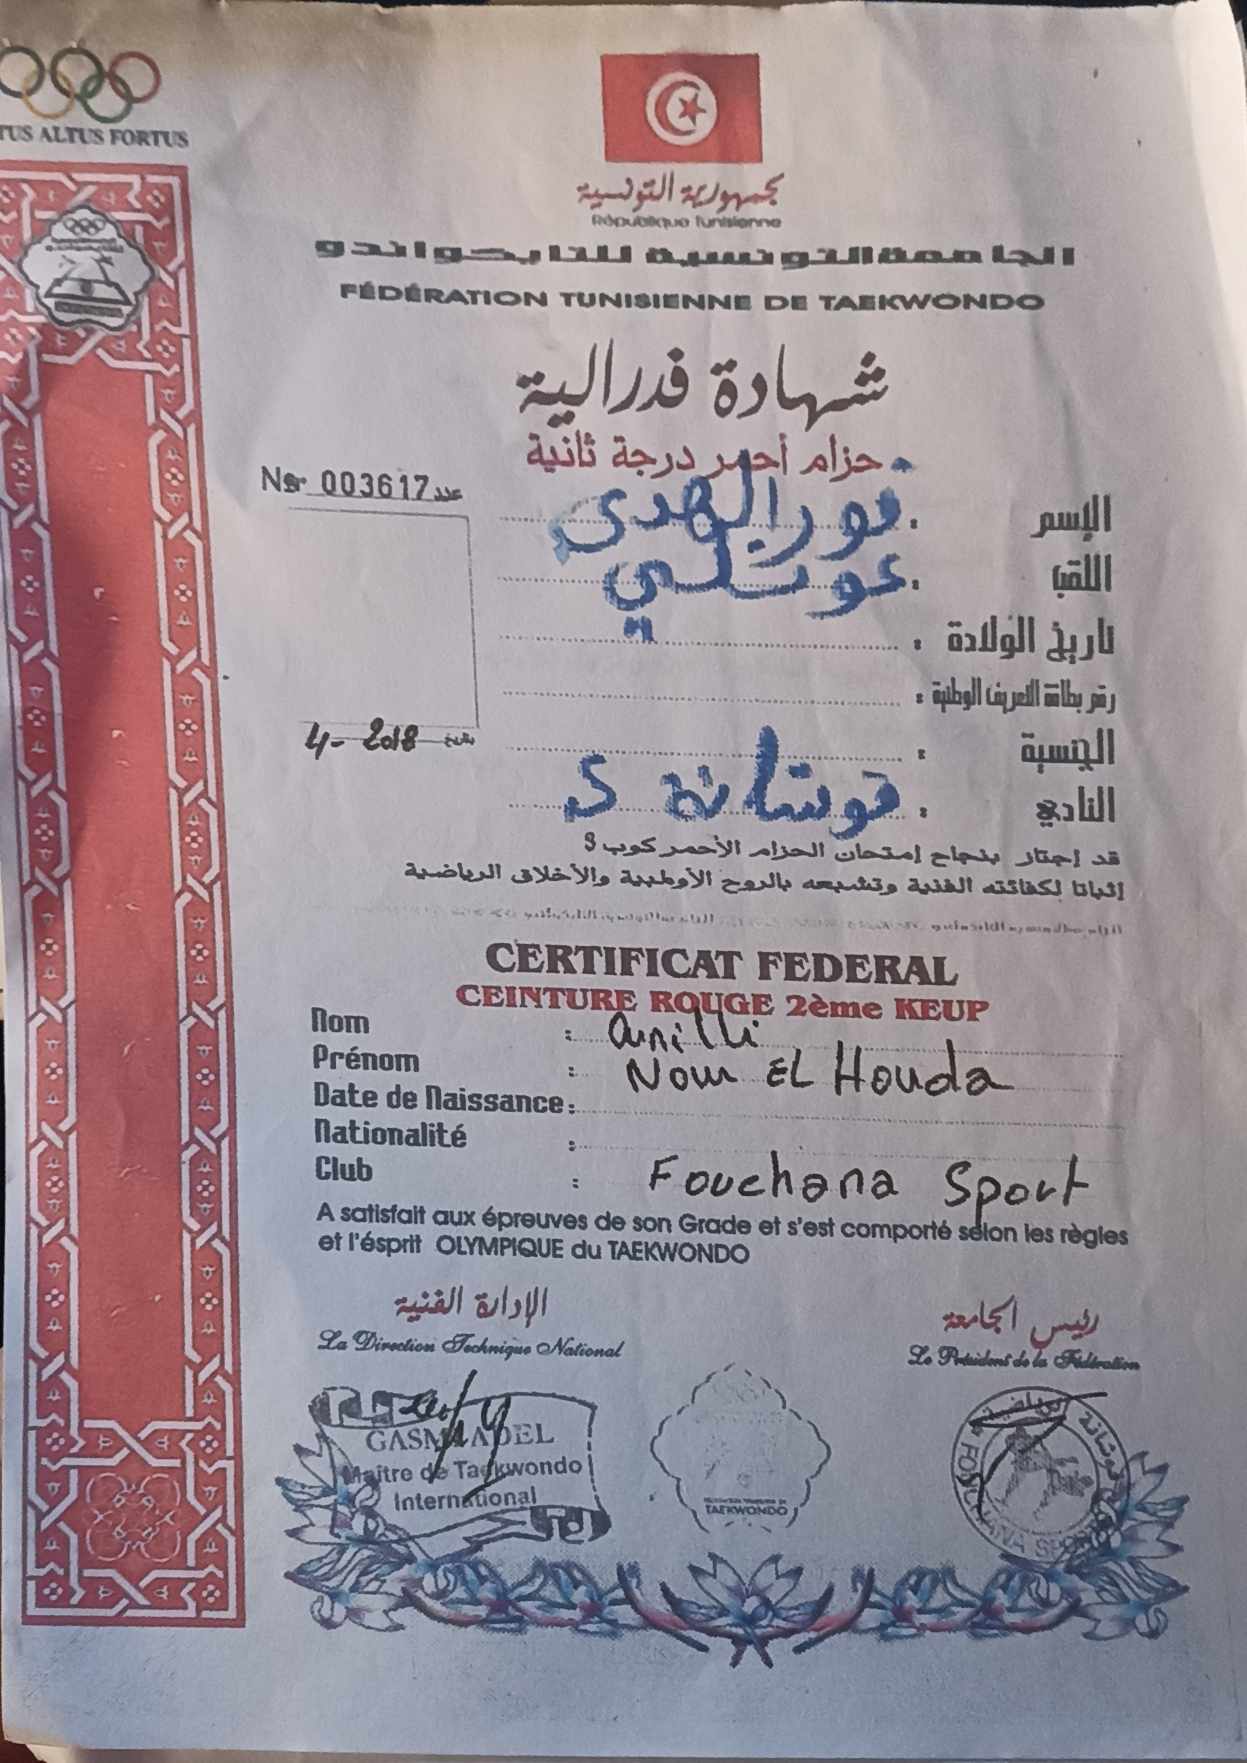 TUS ALTUS FORTUS
الجمهورية التونسية
République Tunisienne
الجامعة التونسية للتايكواندو
FÉDÉRATION TUNISIENNE DE TAEKWONDO
شهادة فدرالية
حزام أحمر درجة ثانية
عدد 003617
الإسم : نور الهدى
اللقب :
تاريخ الولادة :
رقم بطاقة التعريف الوطنية :
الجنسية :
بتاريخ 4-2018
النادي : فوشانة
قد إجتاز بنجاح إمتحان الحزام الأحمر كوب
إثباتا لكفائته الفنية وتشبعه بالروح الأولمبية والأخلاق الرياضية
CERTIFICAT FEDERAL
CEINTURE ROUGE 2ème KEUP
Nom :
Prénom : Nour EL Houda
Date de Naissance :
Nationalité :
Club : Fouchana Sport
A satisfait aux épreuves de son Grade et s'est comporté selon les règles
et l'ésprit OLYMPIQUE du TAEKWONDO
الإدارة الفنية
La Direction Technique National
رئيس الجامعة
Le Président de la Fédération
GASMI ADEL
Maître de Taekwondo
International
TAEKWONDO
FOUCHANA SPORT